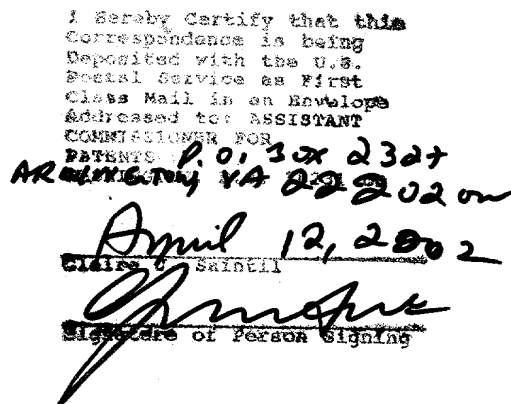 I Hereby Certify that this
Correspondance is being
Deposited with the U.S.
Postal Service as First
Class Mail in an Envelope
Addressed to: ASSISTANT
COMMISSIONER FOR
PATENTS P.O. Box 2327
ARLINGTON, VA 22202 on
April 12, 2002
Claire C. Saintil
Signature of Person Signing